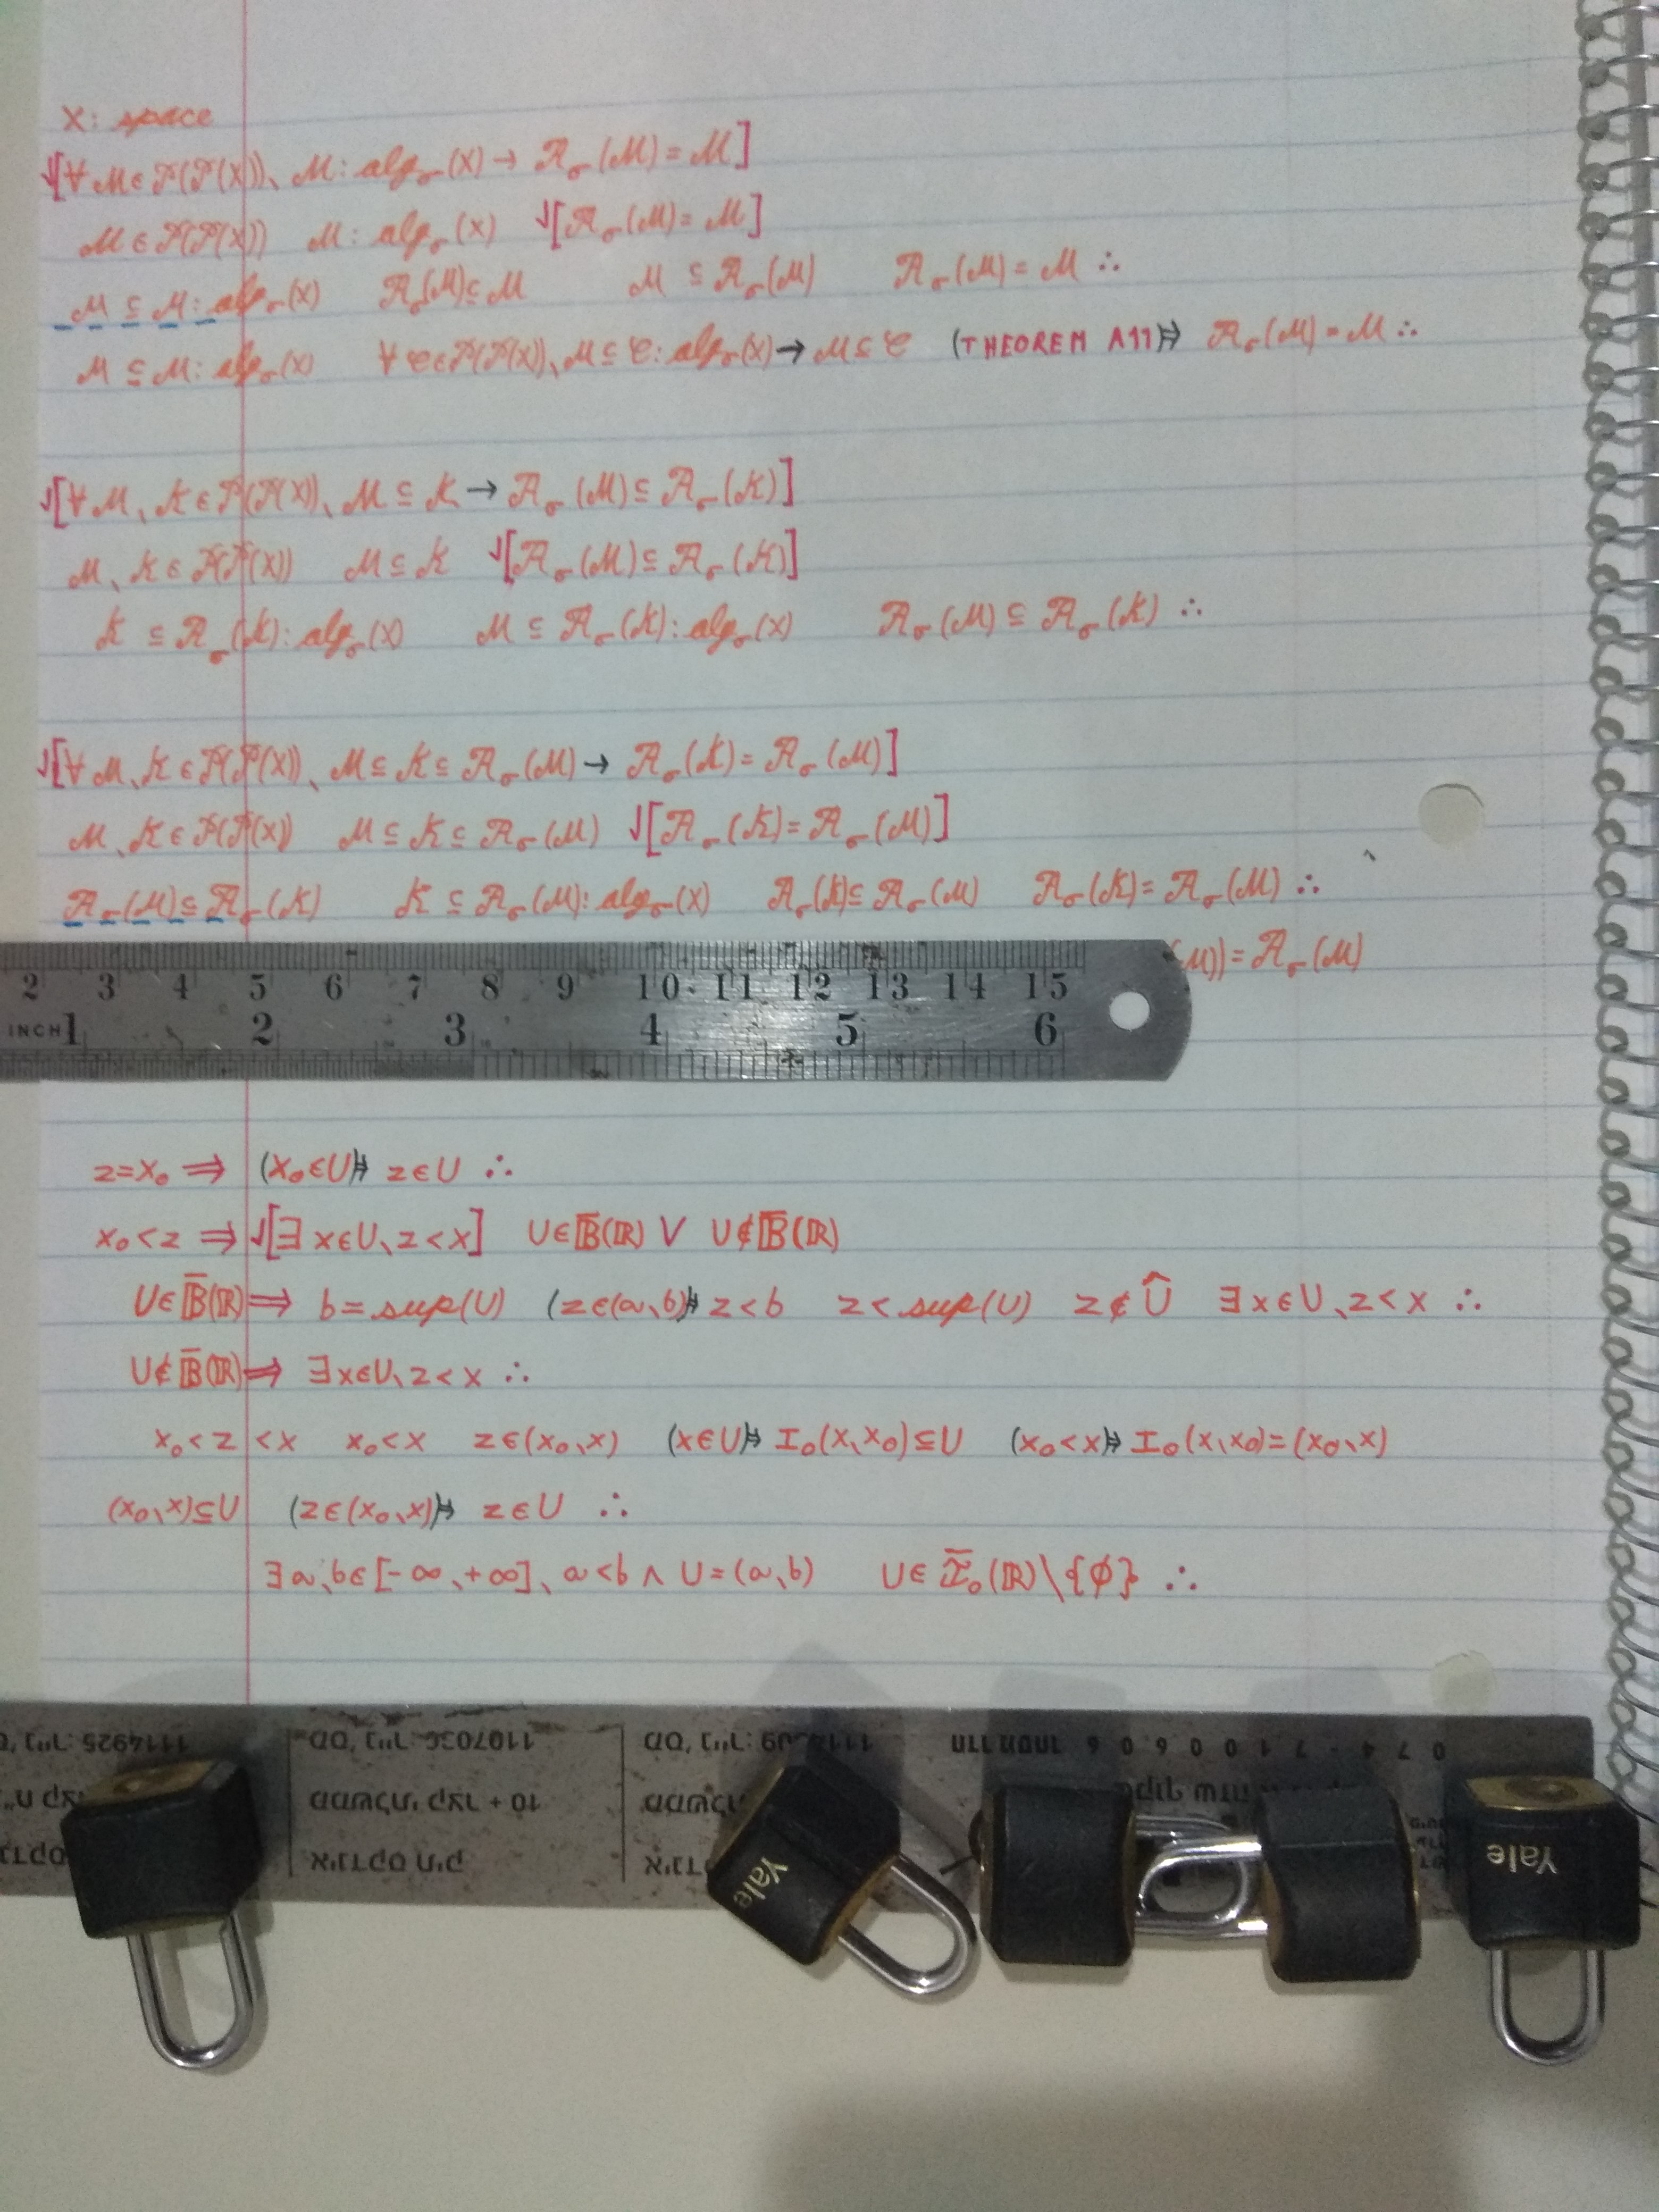 X: space
√[∀ℳ∈𝒫(𝒫(X))、ℳ: alg_σ(X) → 𝒜_σ(ℳ)=ℳ]
ℳ∈𝒫(𝒫(X)) ℳ: alg_σ(X) √[𝒜_σ(ℳ)=ℳ]
ℳ⊆ℳ: alg_σ(X) 𝒜_σ(ℳ)⊆ℳ ℳ⊆𝒜_σ(ℳ) 𝒜_σ(ℳ)=ℳ ∴
ℳ⊆ℳ: alg_σ(X) ∀𝒞∈𝒫(𝒫(X))、ℳ⊆𝒞: alg_σ(X) → ℳ⊆𝒞 (THEOREM A11)⇒ 𝒜_σ(ℳ)=ℳ ∴
√[∀ℳ、𝒦∈𝒫(𝒫(X))、ℳ⊆𝒦 → 𝒜_σ(ℳ)⊆𝒜_σ(𝒦)]
ℳ、𝒦∈𝒫(𝒫(X)) ℳ⊆𝒦 √[𝒜_σ(ℳ)⊆𝒜_σ(𝒦)]
𝒦⊆𝒜_σ(𝒦): alg_σ(X) ℳ⊆𝒜_σ(𝒦): alg_σ(X) 𝒜_σ(ℳ)⊆𝒜_σ(𝒦) ∴
√[∀ℳ、𝒦∈𝒫(𝒫(X))、ℳ⊆𝒦⊆𝒜_σ(ℳ) → 𝒜_σ(𝒦)=𝒜_σ(ℳ)]
ℳ、𝒦∈𝒫(𝒫(X)) ℳ⊆𝒦⊆𝒜_σ(ℳ) √[𝒜_σ(𝒦)=𝒜_σ(ℳ)]
𝒜_σ(ℳ)⊆𝒜_σ(𝒦) 𝒦⊆𝒜_σ(ℳ): alg_σ(X) 𝒜_σ(𝒦)⊆𝒜_σ(ℳ) 𝒜_σ(𝒦)=𝒜_σ(ℳ) ∴
(ℳ))=𝒜_σ(ℳ)
2 3 4 5 6 7 8 9 10 11 12 13 14 15
INCH 1 2 3 4 5 6
z=x₀ ⇒ (x₀∈U)⇒ z∈U ∴
x₀<z ⇒ √[∃x∈U、z<x] U∈𝔹̅(ℝ) ∨ U∉𝔹̅(ℝ)
U∈𝔹̅(ℝ) ⇒ b=sup(U) (z∈(a、b))⇒ z<b z<sup(U) z∉Û ∃x∈U、z<x ∴
U∉𝔹̅(ℝ) ⇒ ∃x∈U、z<x ∴
x₀<z<x x₀<x z∈(x₀、x) (x∈U)⇒ I₀(x、x₀)⊆U (x₀<x)⇒ I₀(x、x₀)=(x₀、x)
(x₀、x)⊆U (z∈(x₀、x))⇒ z∈U ∴
∃a、b∈[-∞、+∞]、a<b ∧ U=(a、b) U∈ℐ̅₀(ℝ)\{∅} ∴
1114925 1107036
Yale
Yale